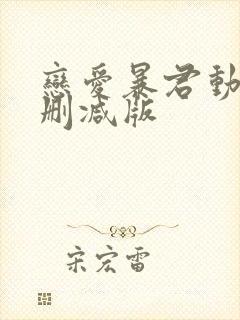 戀愛暴君動
刪減版
宋宏雷